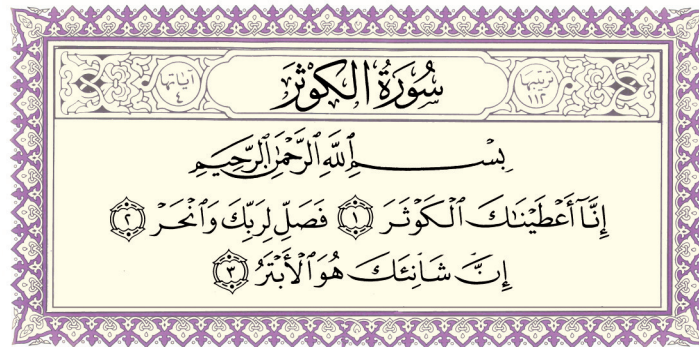 ترتيبها ١١٣ سُورَةُ الكَوْثَرَ آياتها ٤
بِسْمِ ٱللَّهِ ٱلرَّحْمَٰنِ ٱلرَّحِيمِ
إِنَّآ أَعْطَيْنَٰكَ ٱلْكَوْثَرَ ١ فَصَلِّ لِرَبِّكَ وَٱنْحَرْ ٢
إِنَّ شَانِئَكَ هُوَ ٱلْأَبْتَرُ ٣